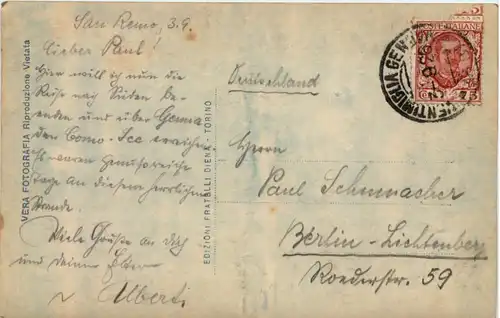 San Remo, 3.9.
Lieber Paul!
Hier will ich nun die
Reise nach Süden be-
enden und über Genua
den Como-See erreichen.
Es waren genussreiche
Tage an diesem herrlichen
Strande.
Viele Grüße an Dich
und deine Eltern
Albert.
VERA FOTOGRAFIA Riproduzione Vietata
EDIZIONI FRATELLI DIENA - TORINO
POSTE ITALIANE
75
VENTIMIGLIA
Deutschland
Herrn
Paul Schumacher
Berlin-Lichtenberg
Roederstr. 59